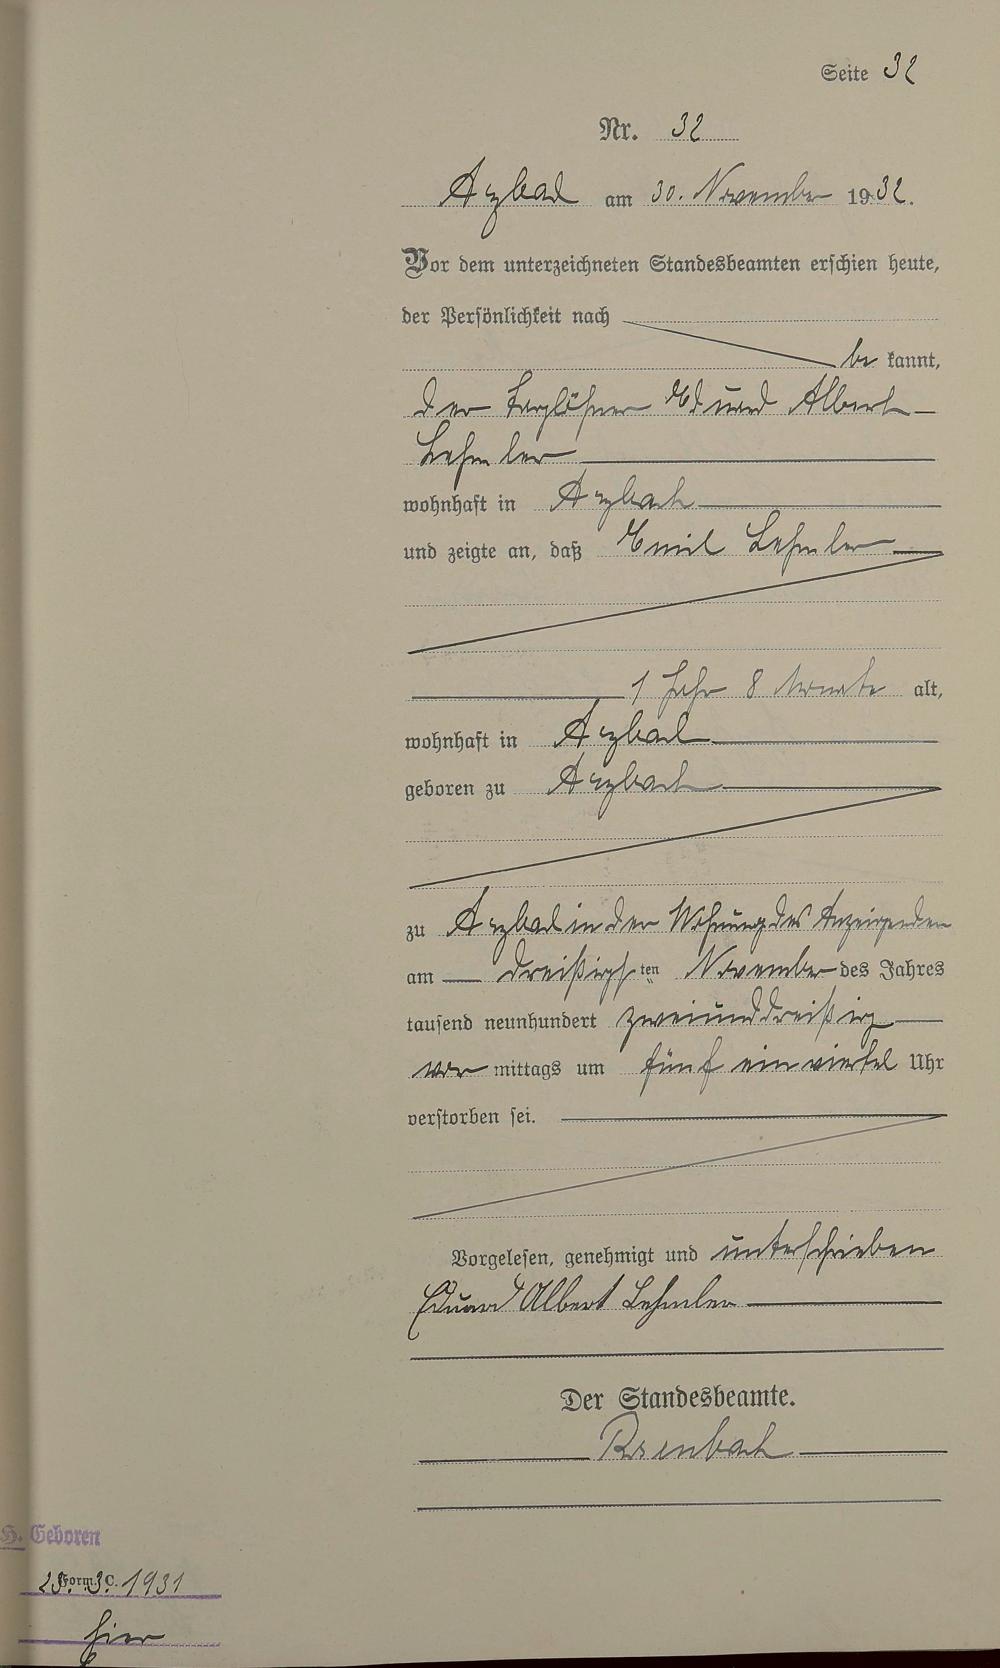 Seite 32
Nr. 32
Arzbach am 30. November 1932.
Vor dem unterzeichneten Standesbeamten erschien heute,
der Persönlichkeit nach
be kannt,
der Taglöhner Eduard Albert
Lehmler
wohnhaft in Arzbach
und zeigte an, daß Emil Lehmler
1 Jahr 8 Monate alt,
wohnhaft in Arzbach
geboren zu Arzbach
zu Arzbach in der Wohnung des Anzeigenden
am dreißigsten November des Jahres
tausend neunhundert zweiunddreißig
vor mittags um fünf einviertel Uhr
verstorben sei.
Vorgelesen, genehmigt und unterschrieben
Eduard Albert Lehmler
Der Standesbeamte.
H. Geboren
Form. C.
23. 3. 1931
hier